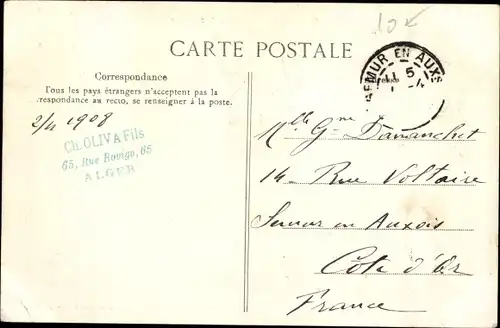 10
CARTE POSTALE
Correspondance
Tous les pays étrangers n'acceptent pas la
respondance au recto, se renseigner à la poste.
2/4 1908
CH. OLIVA Fils
65, Rue Rovigo, 65
ALGER
SEMUR EN AUXS
11 5
4
Mlle Gne
14 Rue Voltaire
Semur en Auxois
Côte d'Or
France